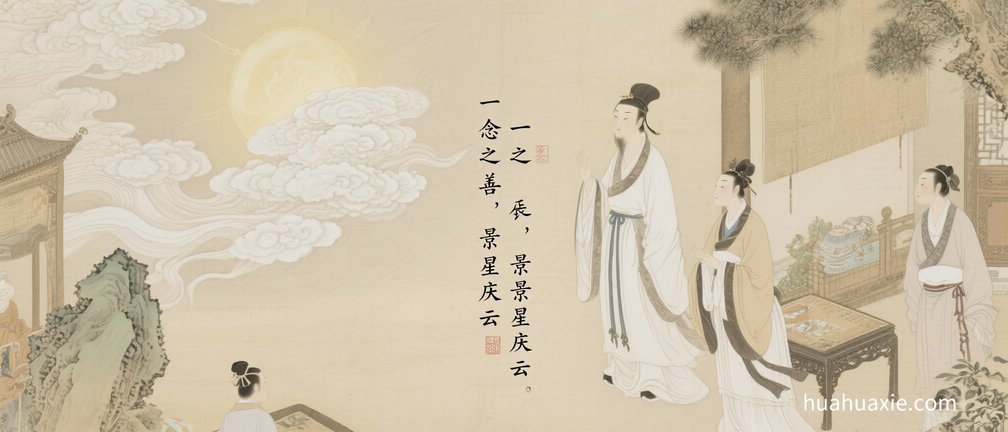 一之 ，景景星庆云。
一念之善，景星庆云
huahuaxie.com